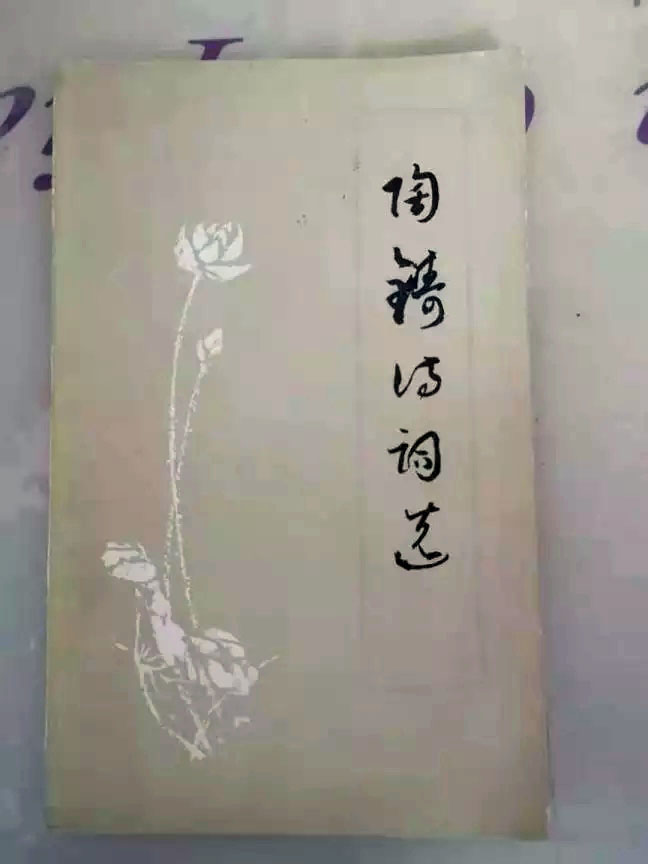 陶鑄诗词选